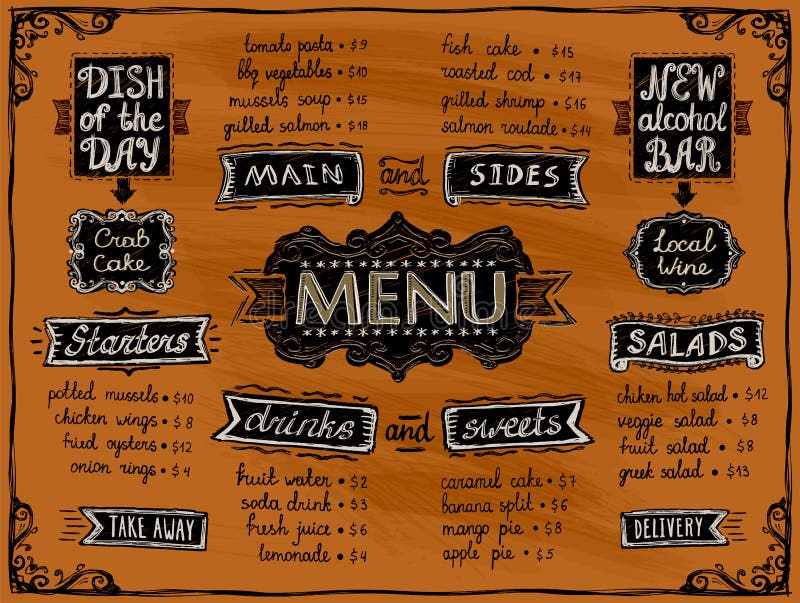 DISH
of the
DAY
Crab
Cake
tomato pasta • $9
bbq vegetables • $10
mussels soup • $15
grilled salmon • $18
fish cake • $15
roasted cod • $17
grilled shrimp • $16
salmon roulade • $14
MAIN and SIDES
NEW
alcohol
BAR
Local
Wine
MENU
Starters
potted mussels • $10
chicken wings • $8
fried oysters • $12
onion rings • $4
TAKE AWAY
drinks and sweets
fruit water • $2
soda drink • $3
fresh juice • $6
lemonade • $4
caramel cake • $7
banana split • $6
mango pie • $8
apple pie • $5
SALADS
chiken hot salad • $12
veggie salad • $8
fruit salad • $8
greek salad • $13
DELIVERY